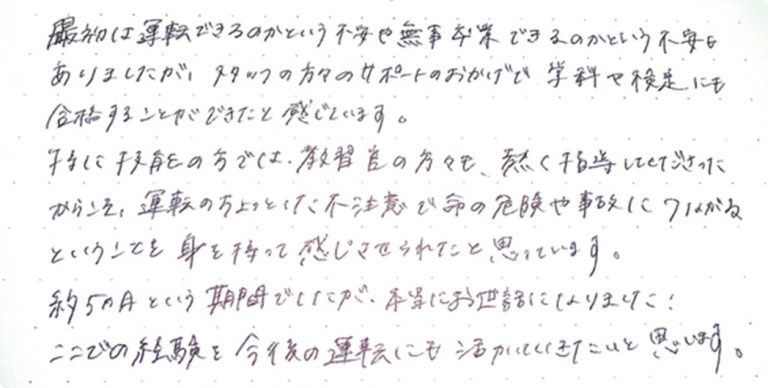 最初は運転できるのかという不安や無事卒業できるのかという不安も
ありましたが、スタッフの方々のサポートのおかげで学科や検定にも
合格することができたと感じています。
特に技能の方では、教習官の方々も、熱く指導してくださった
からこそ、運転のちょっとした不注意で命の危険や事故につながる
ということを身を持って感じさせられたと思っています。
約5カ月という期間でしたが、本当にお世話になりました!
ここでの経験を今後の運転にも活かしていきたいと思います。